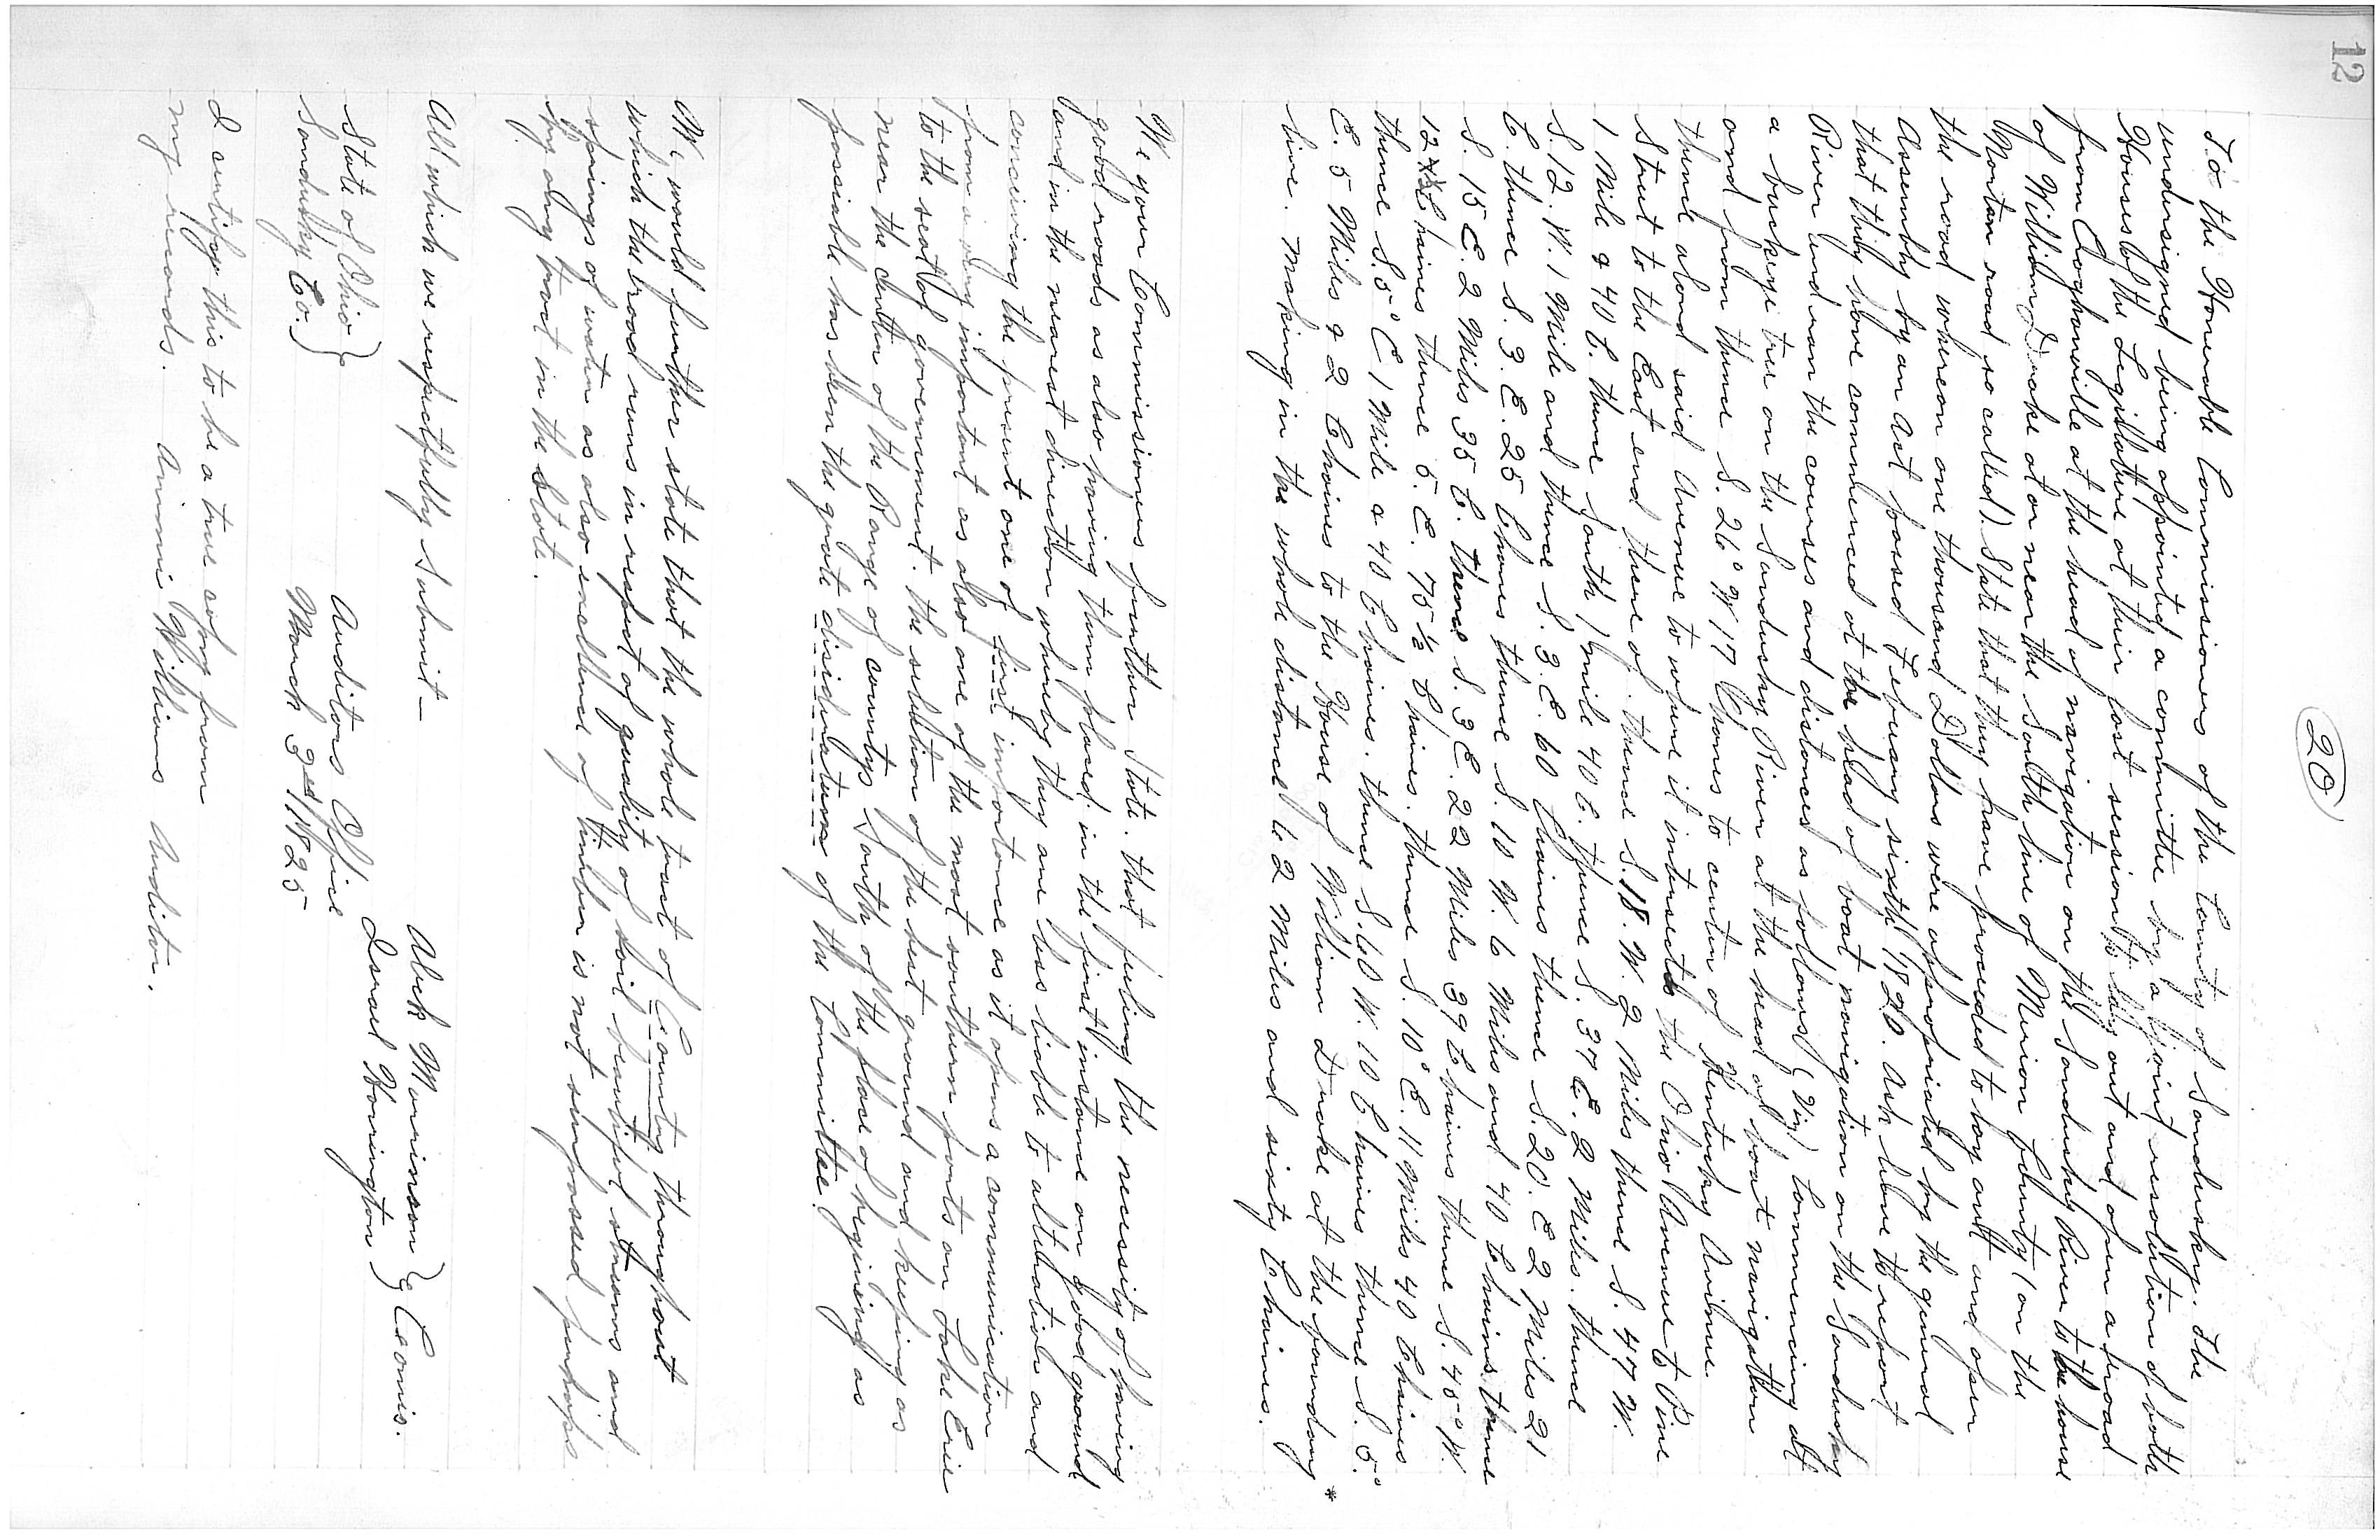 12
(20)
To the Honerable Commissioners of the County of Sandusky. The
undersigned being appointed a committee by a joint resolution of both
Houses of the Legislature at their last session to lay out and open a road
from Croghanville at the head of navigation on the Sandusky River to the house
of William Drake at or near the South line of Merion County (on the
Morton road so called). State that they have proceeded to lay out and open
the road whereon one thousand Dollars were appropriated by the general
Assembly by an Act passed Febuary sixth 1820. Ask leave to report
that they have commenced at the head of boat navigation on the Sandusky
River and ran the courses and distances as follows (Viz) Commencing at
a buckeye tree on the Sandusky River at the head of boat navigation
and from thence S. 26° W 17 Chanes to center of Kentucky Avenue.
thence along said Avenue to where it intersects the Ohio Avenue to Pine
Street to the East end there of. thence S. 18. W. 2 Miles thence S. 47 W.
1 Mile & 40 C. thence South 1 mile 40 C. thence S. 37 E. 2 Miles. thence
S. 12. W. 1 Mile and thence S. 3. E. 60 Chaines thence S. 20. E 2 Miles 21
C. thence S. 3. E. 25 Chanes thence S. 10 W. 6 Miles and 40 Chains. thence
S. 15 E. 2 Miles 35 C. thence S. 3 E. 22 Miles 39 Chains thence S. 45° W.
12 Chaines thence 5. E. 75 ½ Chaines. thence S. 10° E. 11 Miles 40 Chaines
thence S. 5° E 1 Mile & 40 Chaines. thence S. 60 W. 10 Chaines thence S. 5°
E. 5 Miles & 2 Chaines to the House of William Drake at the foundary *
line. making in the whole distance 62 Miles and sixty Chaines.
We your Commissioners further State. that feeling the necessity of having
good roads as also having them placed in the first instance on good ground
and in the nearest direction whereby they are less liable to altteration and
conceiving the present one of first importance as it opens a communication
from a very important as also one of the most southern points on Lake Erie
to the seat of government. the selection of the best ground and keeping as
near the center of the Range of countys South of the place of begining as
possiable has been the grate disideratum of the Committee.
We would further state that the whole tract of Country throughout
which the road runs in respect of quality of soil beautiful streams and
springs of water as also excellence of timber is not surpassed perhaps
by any tract in the State.
All which we respectfully submit —
Abck Morrison } Comis.
Isreal Harington
State of Ohio }
Sandusky Co. }
Auditors Office
March 3rd 1825
I certify this to be a true copy from
my records. Ammi Williams Auditor.